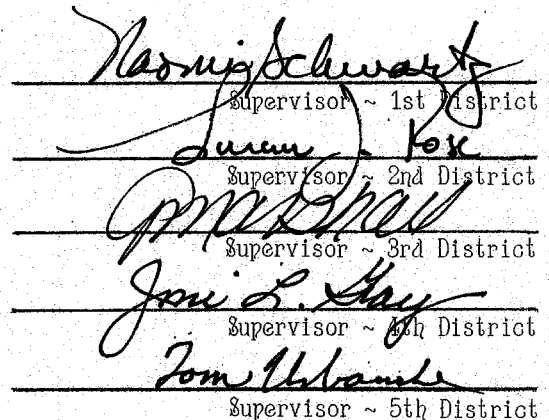 Naomi Schwartz
Supervisor ~ 1st District
Susan Rose
Supervisor ~ 2nd District
Supervisor ~ 3rd District
Joni L. Gray
Supervisor ~ 4th District
Tom Urbanske
Supervisor ~ 5th District